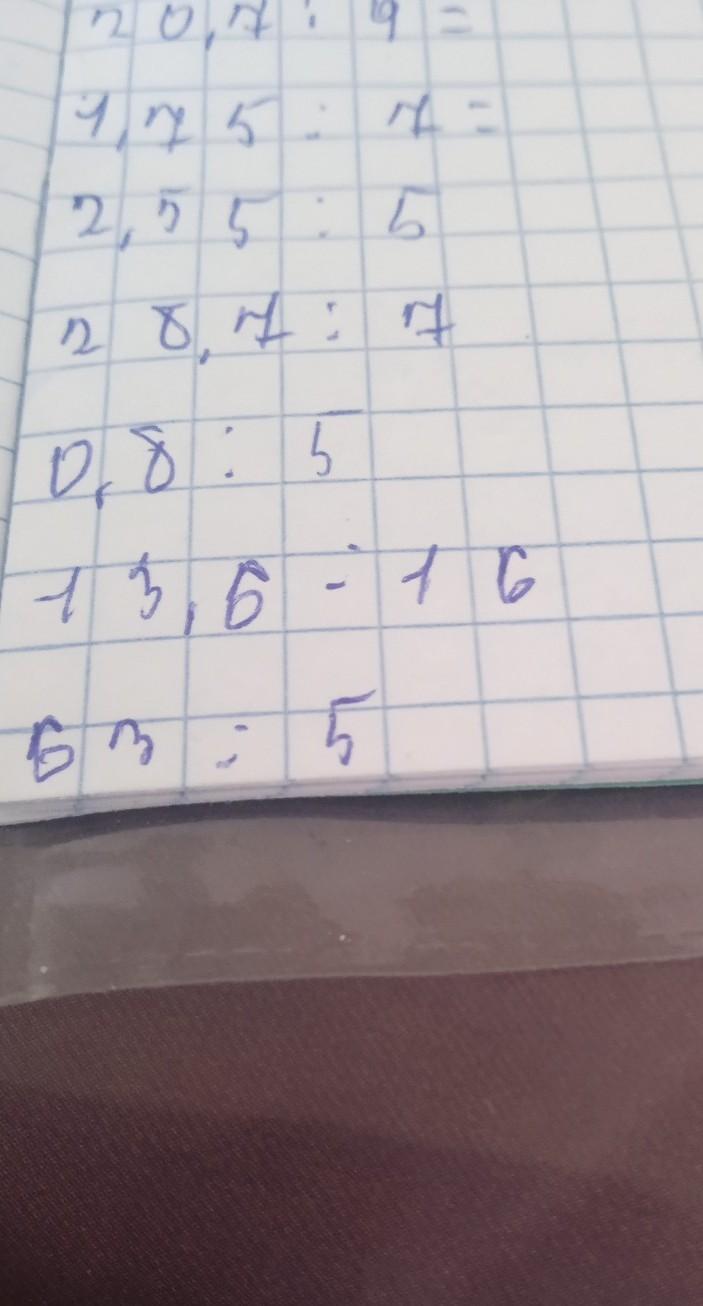 20,7 : 9 =
1,75 : 7 =
2,55 : 5
28,7 : 7
0,8 : 5
13,6 : 16
63 : 5